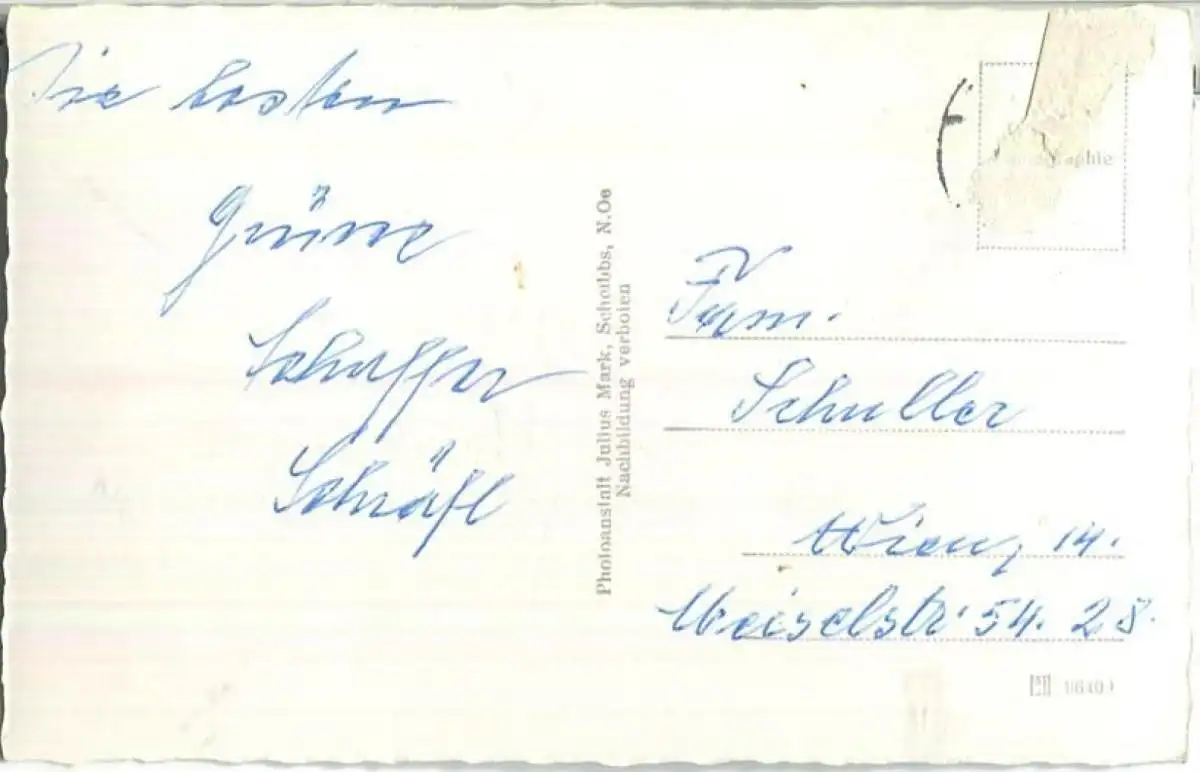 Die besten
Grüsse
Schaffer
Schräfl
Photoanstalt Julius Mark, Scheibbs, N.Oe
Nachbildung verboten
Fam.
Schuller
Wien, 14.
Meiselstr. 54. 28.